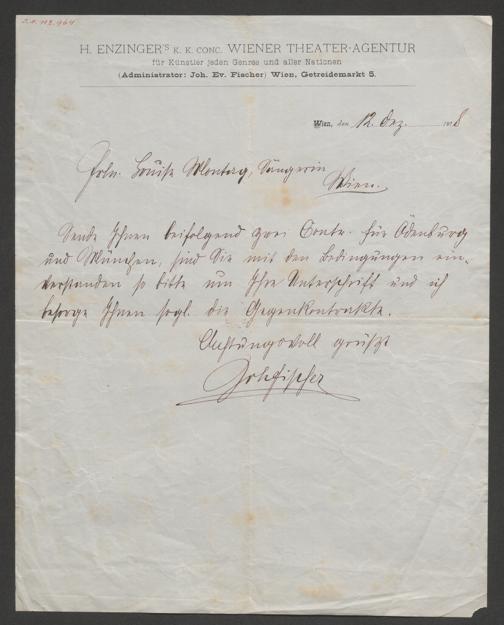 H. ENZINGER'S K. K. CONC. WIENER THEATER-AGENTUR
für Künstler jeden Genres und aller Nationen
(Administrator: Joh. Ev. Fischer) Wien, Getreidemarkt 5.
Wien, den 12. Dez. 8
Frln. Louise Montag, Sängerin
Wien.
Sende Ihnen beifolgend zwei Contr. für Ödenburg
und München, sind Sie mit den Bedingungen ein-
verstanden so bitte um Ihre Unterschrift und ich
besorge Ihnen sogl. die Gegenkontrakte.
Achtungsvoll grüßt
Joh Fischer